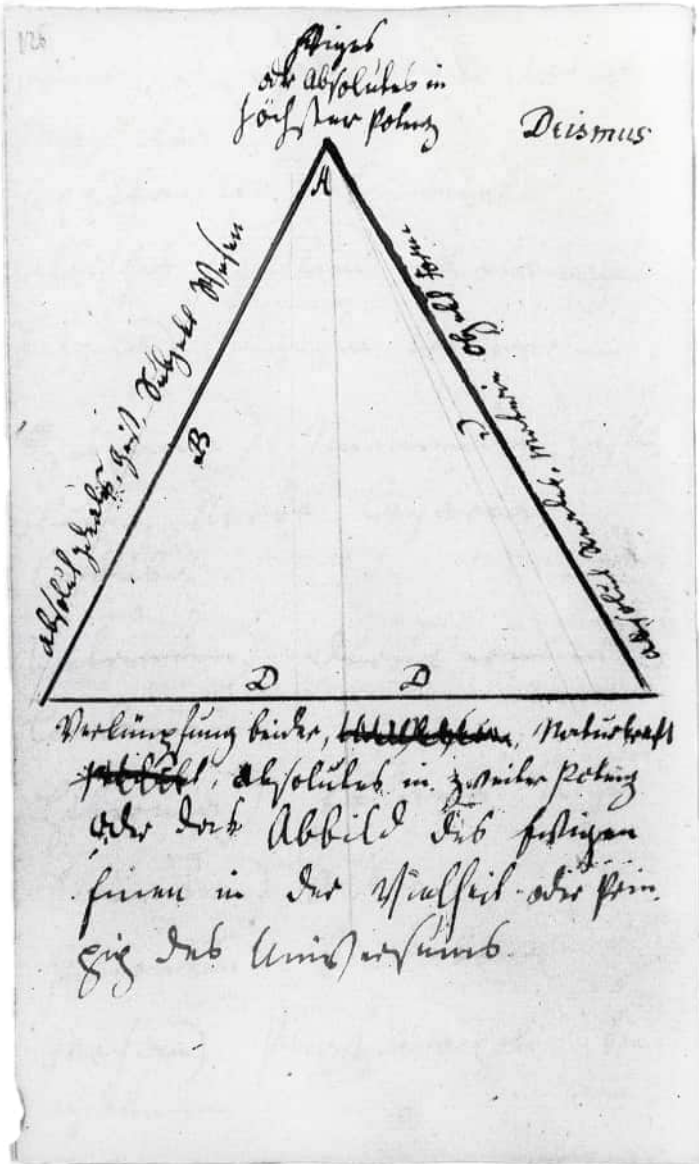 126
Ewiges
oder Absolutes in
höchster Potenz
Deismus
A
absolut Ideales, Geist, Subjekt Wesen
B
absolut Reales, Materie Objekt Form
D D
Verknüpfung beider, Naturkraft
Absolutes in zweiter Potenz
oder das Abbild des Ewigen
Einen in der Vielheit oder Prin
zip des Universums